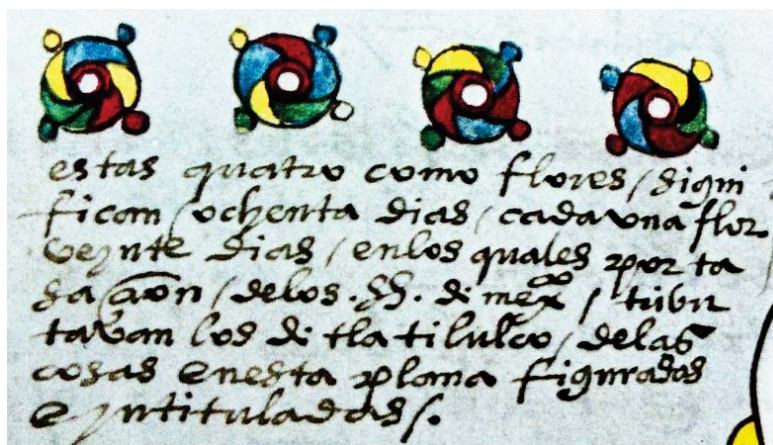 estas quatro como flores / signi
fican / ochenta dias / cada una flor
veynte dias / en los quales por ta
saçion / de los .SS. de mexco / tribu
tavan los de tlatilulco / de las
cosas en esta plana figurados
e yntituladas /.